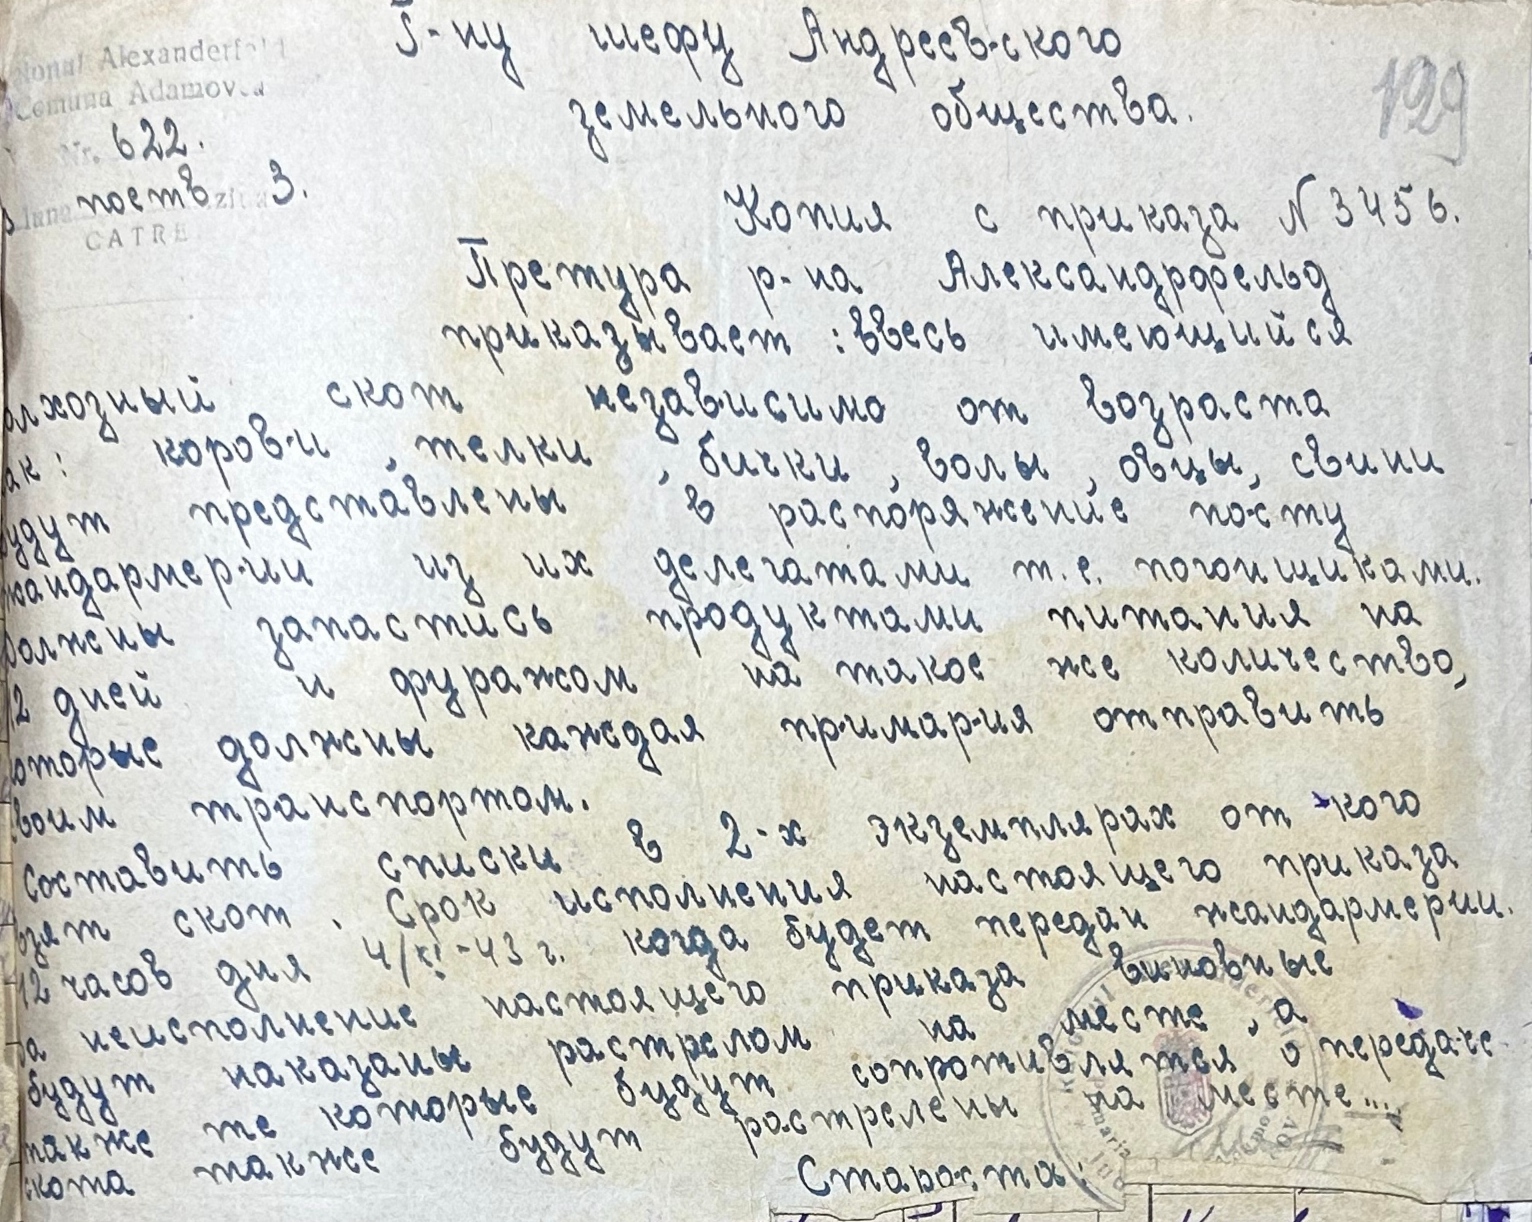 Г-ну шефу Андреев-ского
земельного общества.
129
Alexanderfeld
Comuna Adamovca
Nr. 622.
постъ 3.
CATRE
Копия с приказа N 3456.
Претура р-на Александрфельд
приказывает : ввесь имеющийся
олхозный скот независимо от возраста
ак: коров-и, телки, бички, волы, овцы, свини
будут представлены в распоряжение посту
жандармер-ии из их делегатами т.е. погонщиками.
должны запастись продуктами питания на
12 дней и фуражом на такое же количество,
оторые должны каждая примар-ия отправить
своим транспортом.
Составить списки в 2-х экземплярах от кого
взят скот. Срок исполнения настоящего приказа
12 часов дня 4/XI-43 г. когда будет передан жандармерии.
за неисполнение настоящего приказа виновные
будут наказаны растрелом на месте, а
также те которые будут сопротивлятся о передаче
скота также будут растрелены на месте...
Староста: